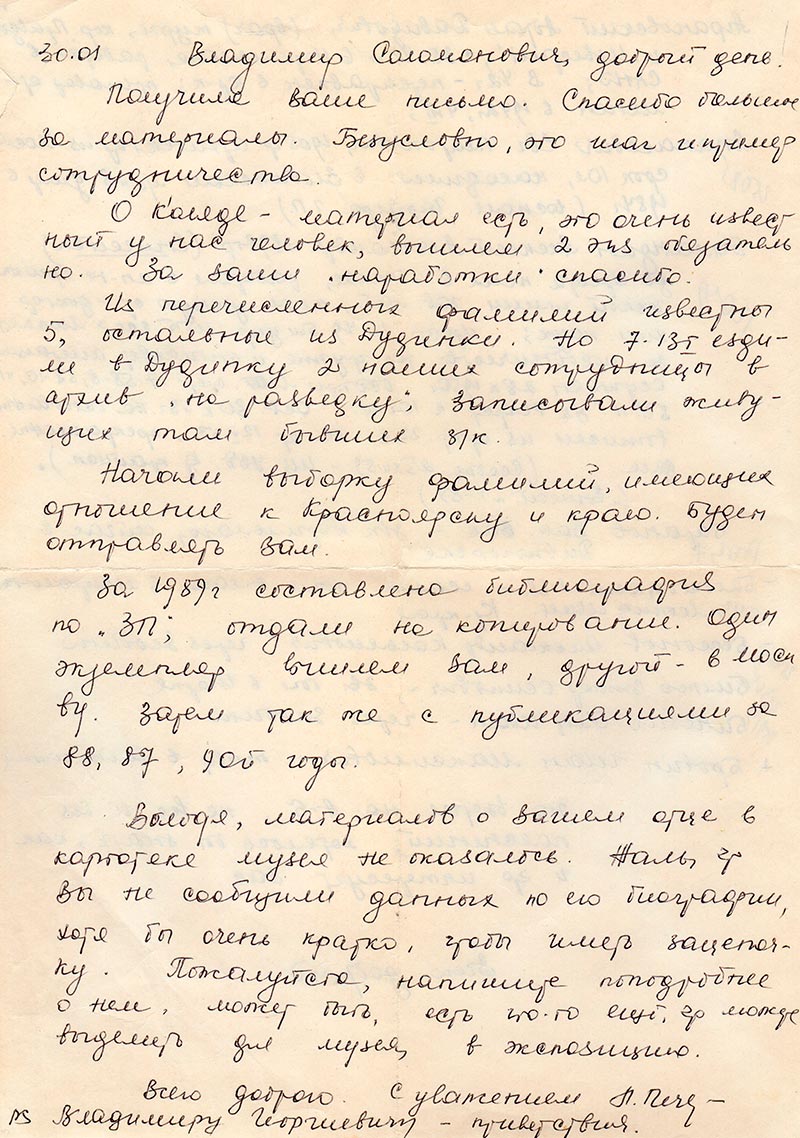 30.01 Владимир Соломонович, добрый день.
Получила ваше письмо. Спасибо большое
за материалы. Безусловно, это шаг и пример
сотрудничества.
О Каляде - материал есть, это очень извест
ный у нас человек, вышлем 2 экз обязатель
но. За ваши "наработки" спасибо.
Из перечисленных фамилий известны
5, остальные из Дудинки. Но 7-13 I езди-
ли в Дудинку 2 наших сотрудницы в
архив "на разведку", записывали живу-
щих там бывших з/к.
Начали выборку фамилий, имеющих
отношение к Красноярску и краю. Будем
отправлять вам.
За 1989г составлена библиография
по "ЗП", отдали на копирование. Один
экземпляр вышлем вам, другой - в Моск
ву. Затем так же с публикациями за
88, 87, 90й годы.
Володя, материалов о вашем отце в
картотеке музея не оказалось. Жаль, чт
вы не сообщили данных по его биографии,
хотя бы очень кратко, чтобы иметь зацепоч-
ку. Пожалуйста, напишите поподробнее
о нем, может быть, есть что-то ещё, чт можете
выделить для музея, в экспозицию.
Всего доброго. С уважением
PS Владимиру Георгиевичу - приветствия.